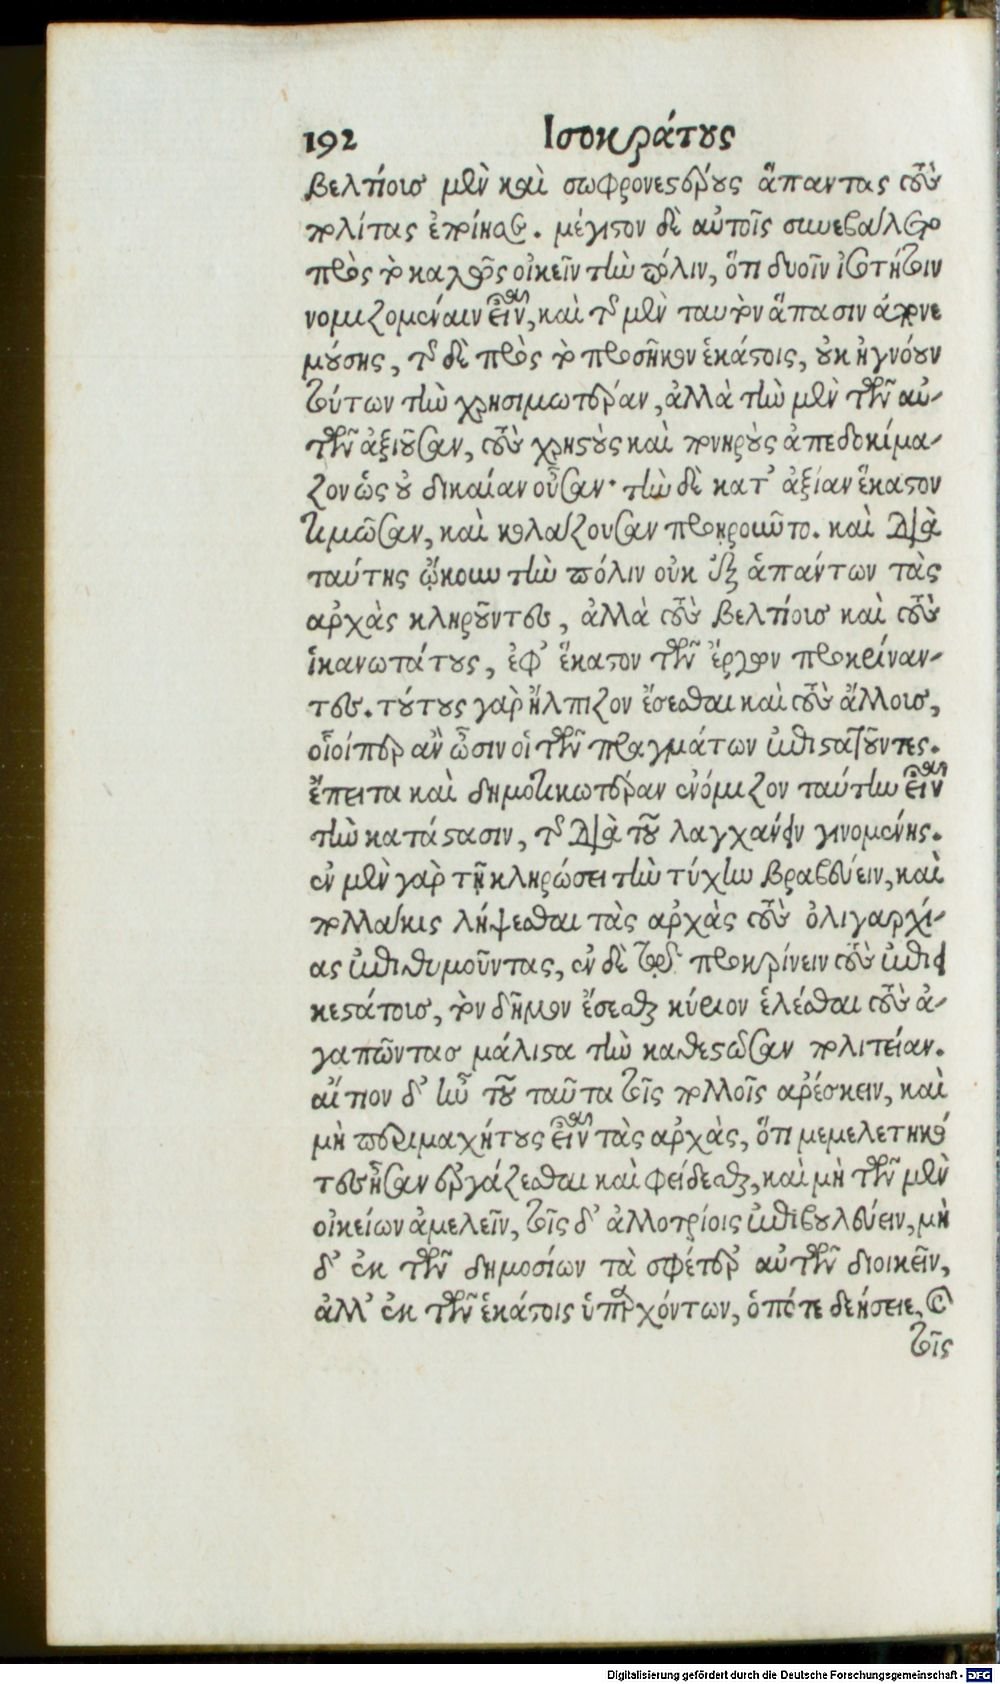 192 Ισοκράτους
βελτίους μὲν καὶ σωφρονεστέρους ἅπαντας τοὺς
πολίτας ἐποίησαν. μέγιστον δὲ αὐτοῖς συνεβάλετο
πρὸς τὸ καλῶς οἰκεῖν τὴν πόλιν, ὅτι δυοῖν ἰσοτήτοιν
νομιζομέναιν εἶναι, καὶ τῆς μὲν ταυτὸν ἅπασιν ἀπονε
μούσης, τῆς δὲ πρὸς τὸ προσῆκον ἑκάστοις, οὐκ ἠγνόουν
τούτων τὴν χρησιμωτέραν, ἀλλὰ τὴν μὲν τῶν αὐ-
τῶν ἀξιοῦσαν, τοὺς χρηστοὺς καὶ πονηροὺς ἀπεδοκίμα-
ζον ὡς οὐ δικαίαν οὖσαν· τὴν δὲ κατ' ἀξίαν ἕκαστον
τιμῶσαν, καὶ κολάζουσαν προῃροῦντο. καὶ διὰ
ταύτης ᾤκουν τὴν πόλιν οὐκ ἐξ ἁπάντων τὰς
ἀρχὰς κληροῦντες, ἀλλὰ τοὺς βελτίους καὶ τοὺς
ἱκανωτάτους, ἐφ' ἕκαστον τῶν ἔργων προκρίναν-
τες. τούτους γὰρ ἤλπιζον ἔσεσθαι καὶ τοὺς ἄλλους,
οἷοίπερ ἂν ὦσιν οἱ τῶν πραγμάτων ἐπιστατοῦντες.
ἔπειτα καὶ δημοτικωτέραν ἐνόμιζον ταύτην εἶναι
τὴν κατάστασιν, τῆς διὰ τοῦ λαγχάνειν γινομένης.
ἐν μὲν γὰρ τῇ κληρώσει τὴν τύχην βραβεύειν, καὶ
πολλάκις λήψεσθαι τὰς ἀρχὰς τοὺς ὀλιγαρχί-
ας ἐπιθυμοῦντας, ἐν δὲ τῷ προκρίνειν τοὺς ἐπιει
κεστάτους, τὸν δῆμον ἔσεσθαι κύριον ἑλέσθαι τοὺς ἀ-
γαπῶντας μάλιστα τὴν καθεστῶσαν πολιτείαν.
αἴτιον δ' ἦν τοῦ ταῦτα τοῖς πολλοῖς ἀρέσκειν, καὶ
μὴ περιμαχήτους εἶναι τὰς ἀρχὰς, ὅτι μεμελετηκό
τες ἦσαν ἐργάζεσθαι καὶ φείδεσθαι, καὶ μὴ τῶν μὲν
οἰκείων ἀμελεῖν, τοῖς δ' ἀλλοτρίοις ἐπιβουλεύειν, μὴ
δ' ἐκ τῶν δημοσίων τὰ σφέτερ' αὐτῶν διοικεῖν,
ἀλλ' ἐκ τῶν ἑκάστοις ὑπαρχόντων, ὁπότε δεήσειε,
τοῖς
Digitalisierung gefördert durch die Deutsche Forschungsgemeinschaft - DFG